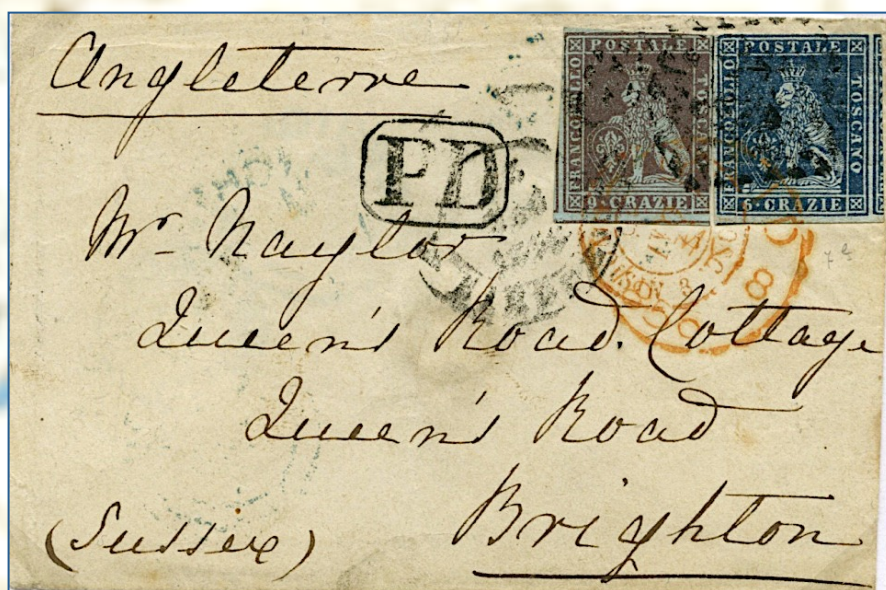 Angleterre
FRANCOBOLLO POSTALE TOSCANO 9·CRAZIE
FRANCOBOLLO POSTALE TOSCANO 6·CRAZIE
PD
Mr. Naylor
Queen's Road Cottage
Queen's Road
Brighton
(Sussex)